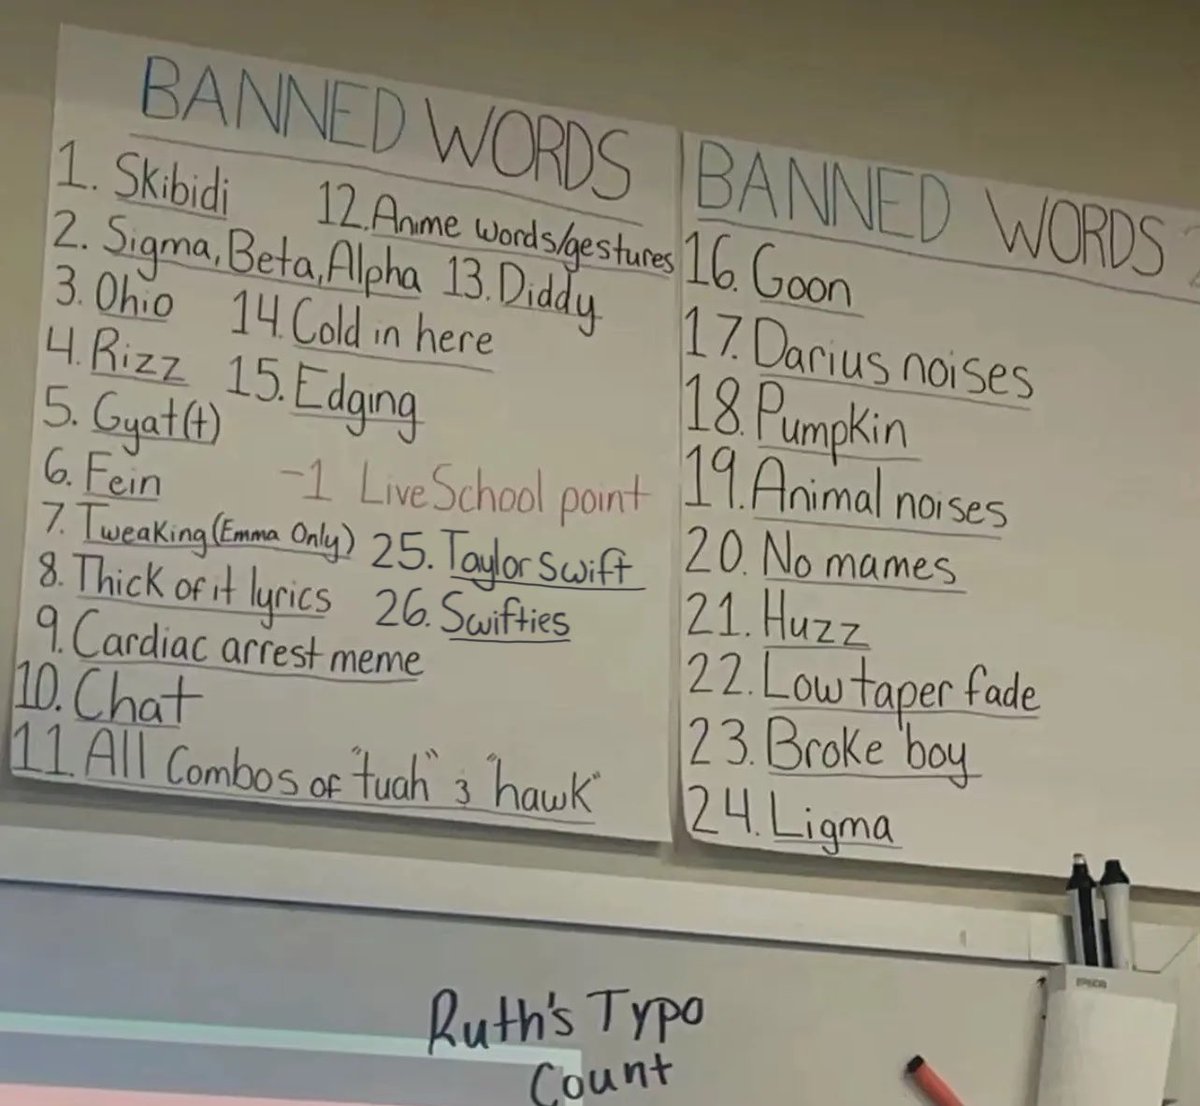 BANNED WORDS
1. Skibidi
2. Sigma, Beta, Alpha
3. Ohio
4. Rizz
5. Gyat(t)
6. Fein
7. Tweaking (Emma Only)
8. Thick of it lyrics
9. Cardiac arrest meme
10. Chat
11. All Combos of "tuah" & "hawk"
12. Anime words/gestures
13. Diddy
14. Cold in here
15. Edging
-1 LiveSchool point
25. Taylor Swift
26. Swifties
BANNED WORDS 2
16. Goon
17. Darius noises
18. Pumpkin
19. Animal noises
20. No mames
21. Huzz
22. Low taper fade
23. Broke boy
24. Ligma
EPSON
Ruth's Typo
Count